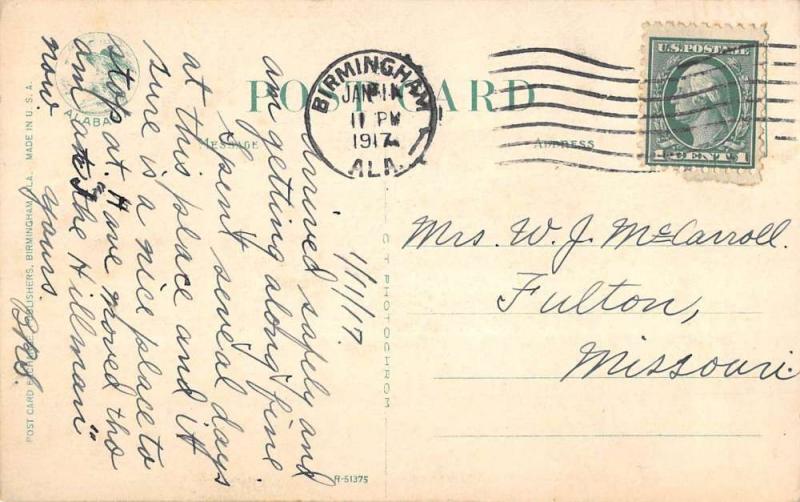 POST CARD
MESSAGE
ADDRESS
ALABA
BIRMINGHAM
JAN 11
11 PM
1917
ALA.
U.S. POSTAGE
1 CENT 1
1/11/17.
Arrived safely and
am getting along fine.
Spent several days
at this place and it
sure is a nice place to
stop at. Have moved tho
am at "The Hillman"
now.
Yours.
Mrs. W. J. McCarroll.
Fulton,
Missouri.
C T PHOTOCHROM
A-51375
POST CARD EXCHANGE, PUBLISHERS, BIRMINGHAM, ALA. MADE IN U.S.A.